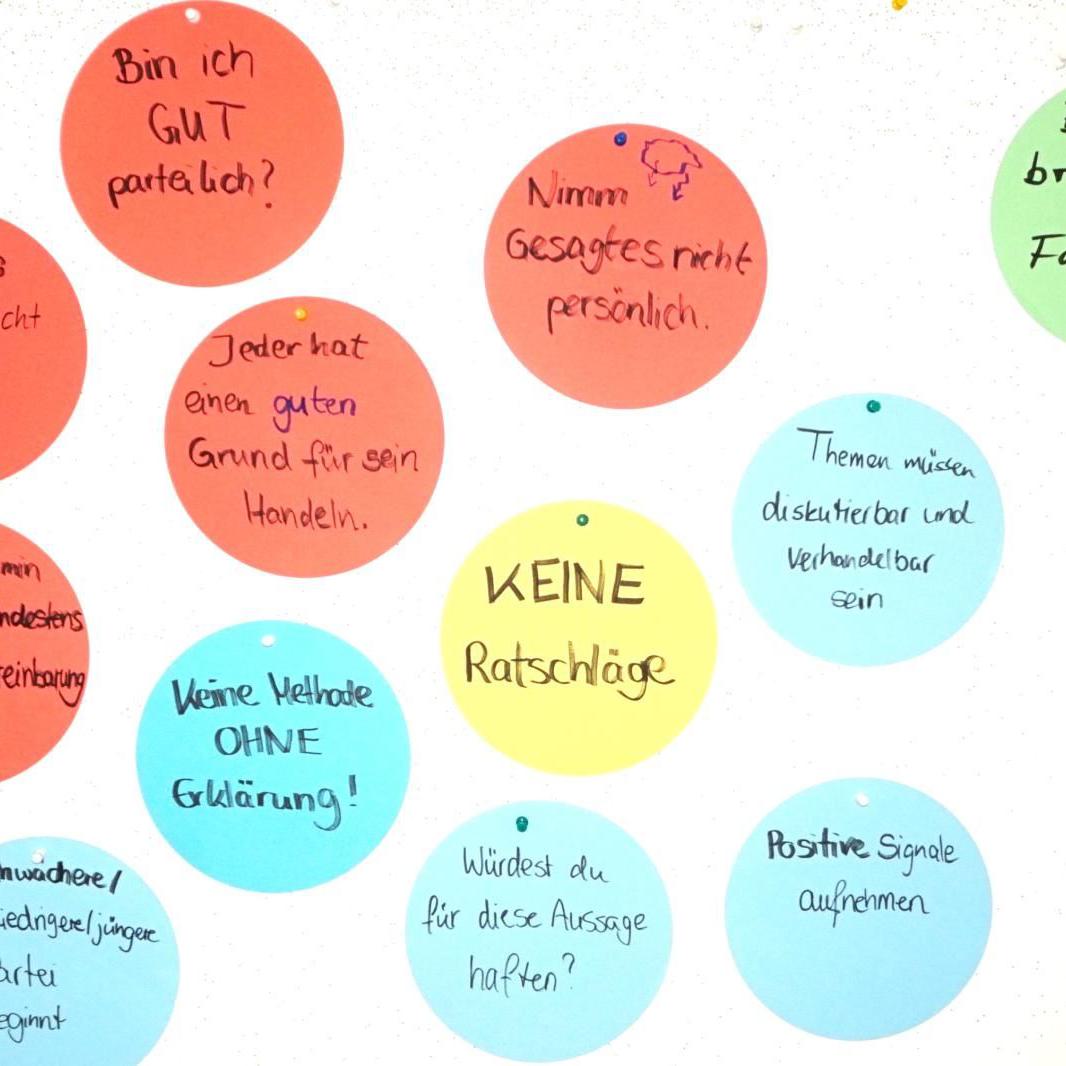 Bin ich
GUT
parteilich?
Nimm
Gesagtes nicht
persönlich.
br
cht
Jeder hat
einen guten
Grund für sein
Handeln.
Themen müssen
diskutierbar und
verhandelbar
sein
KEINE
Ratschläge
min
ndestens
reinbarung
Keine Methode
OHNE
Erklärung!
hwächere/
iedrigere/jüngere
artei
eginnt
Würdest du
für diese Aussage
haften?
Positive Signale
aufnehmen